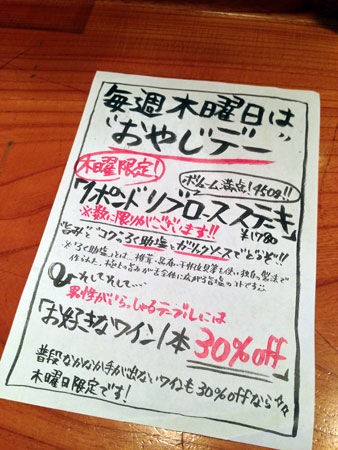 毎週木曜日は
"おやじデー"
木曜限定!
ボリューム満点!450g!!
「1ポンドリブロースステーキ」
※数に限りがございます!! ¥1780
旨みとコクのろく助塩とガーリックソースでどうぞ!!
※"ろく助塩"とは、椎茸・昆布・干帆立貝等を使い独自の製法で
そしてそして…
男性がいらっしゃるテーブルには
「お好きなワイン」1本 30%off
普段なかなか手が出ないワインも30%offなら☆☆
木曜日限定です!